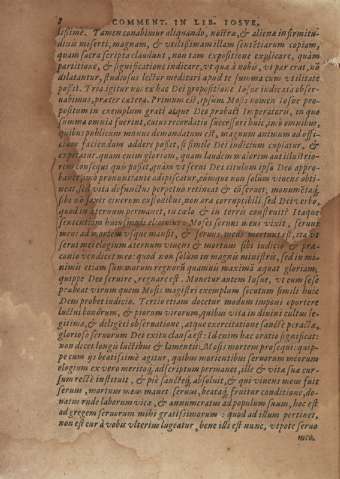 8 COMMENT. IN LIB. IOSVE,
lissimè. Tamen conabimur aliquando, nostra, & aliena infirmitu-
dini misertí, magnam, & vtilissimam illam sensuum copiam,
quam sacra scripta claudunt, non tam expositione explicare, quàm
partitione, & significatione indicare, vt quæ à nobis, vt par erat, nõ
dilatantur, studiosus lector meditari apud se summa cum vtilitate
possit. Tria igitur nos ex hac Dei propositione Iosue indicata obser-
uabimus, præter cætera. Primum est, ipsum Mosis nomen Iosue pro-
positum in exemplum grati atque Deo probati Imperatoris, in qua
summa omnia fuerant, cuius recordatio successori huic, in ò omnibus,
quibus publicum munus demandatum est, magnum animum ad offi-
cium faciendum addere posset, si simile Dei iudicium cupiatur, &
expetatur. quam enim gloriam, quam laudem maiorem aut illustrio-
rem consequi quis possit, quàm vt serui Dei titulum ipso Deo appro-
bante, pronuntiante adipiscatur, eumque non solum viuens obti-
neat, sed vita defunctus perpetuò retineat & obseruet, monumẽtaq́;
sibi nõ saxis cinerum custodibus, non æra corruptibili sed Dei verbo,
quod in æternum permanet, in cœlo & in terris construat? Itaque
sententiam huiusmodi, Moses seruus meus vixit, seruus
meus ad mortem vsque mansit, & seruus meus mortuus est, ita vt
serui mei elogium æternum viuens & mortuus sibi iudicio & præ-
conio vendicet meo: quod non solùm in magnis ministris, sed in mi-
nimis etiam summorum regnorum quamuis maxima æquat gloriam,
quippe Deo seruire, regnare est. Monetur autem Iosue, vt cum se se
probeat virum quem Mosis magistri exemplum secutum simili huic
Deus probet iudicio. Tertiò etiam docetur modum imponi oportere
luctui bonorum, & piorum virorum, quibus vita in diuini cultus le-
gitima, & deligēti obseruatione, atque exercitatione sanctè peracta,
gloriosè seruorum Dei exitu clausa est: Id enim hac oratio significat:
non decet longis luctibus & lamentis Mosis mortem prosequi: quip-
pe cum ijs beatissimè agitur, quibus morientibus seruorum meorum
elogium ex vero meritoq́; adscriptum permanet, ille & vita sua cur-
sum rectè instituit, & piè sanctéq́; absoluit, & qui viuens meus fuit
seruus, mortuus meus manet seruus, beataq́; fruitur conditione, do-
natus rude laborum vitæ, & annumeratus ad populum suum, hoc est
ad gregem seruorum mihi gratissimorum: quod ad illum pertinet,
non est cur à vobis vlterius lugeatur, bene illi est nunc, vt pote seruo
meo,